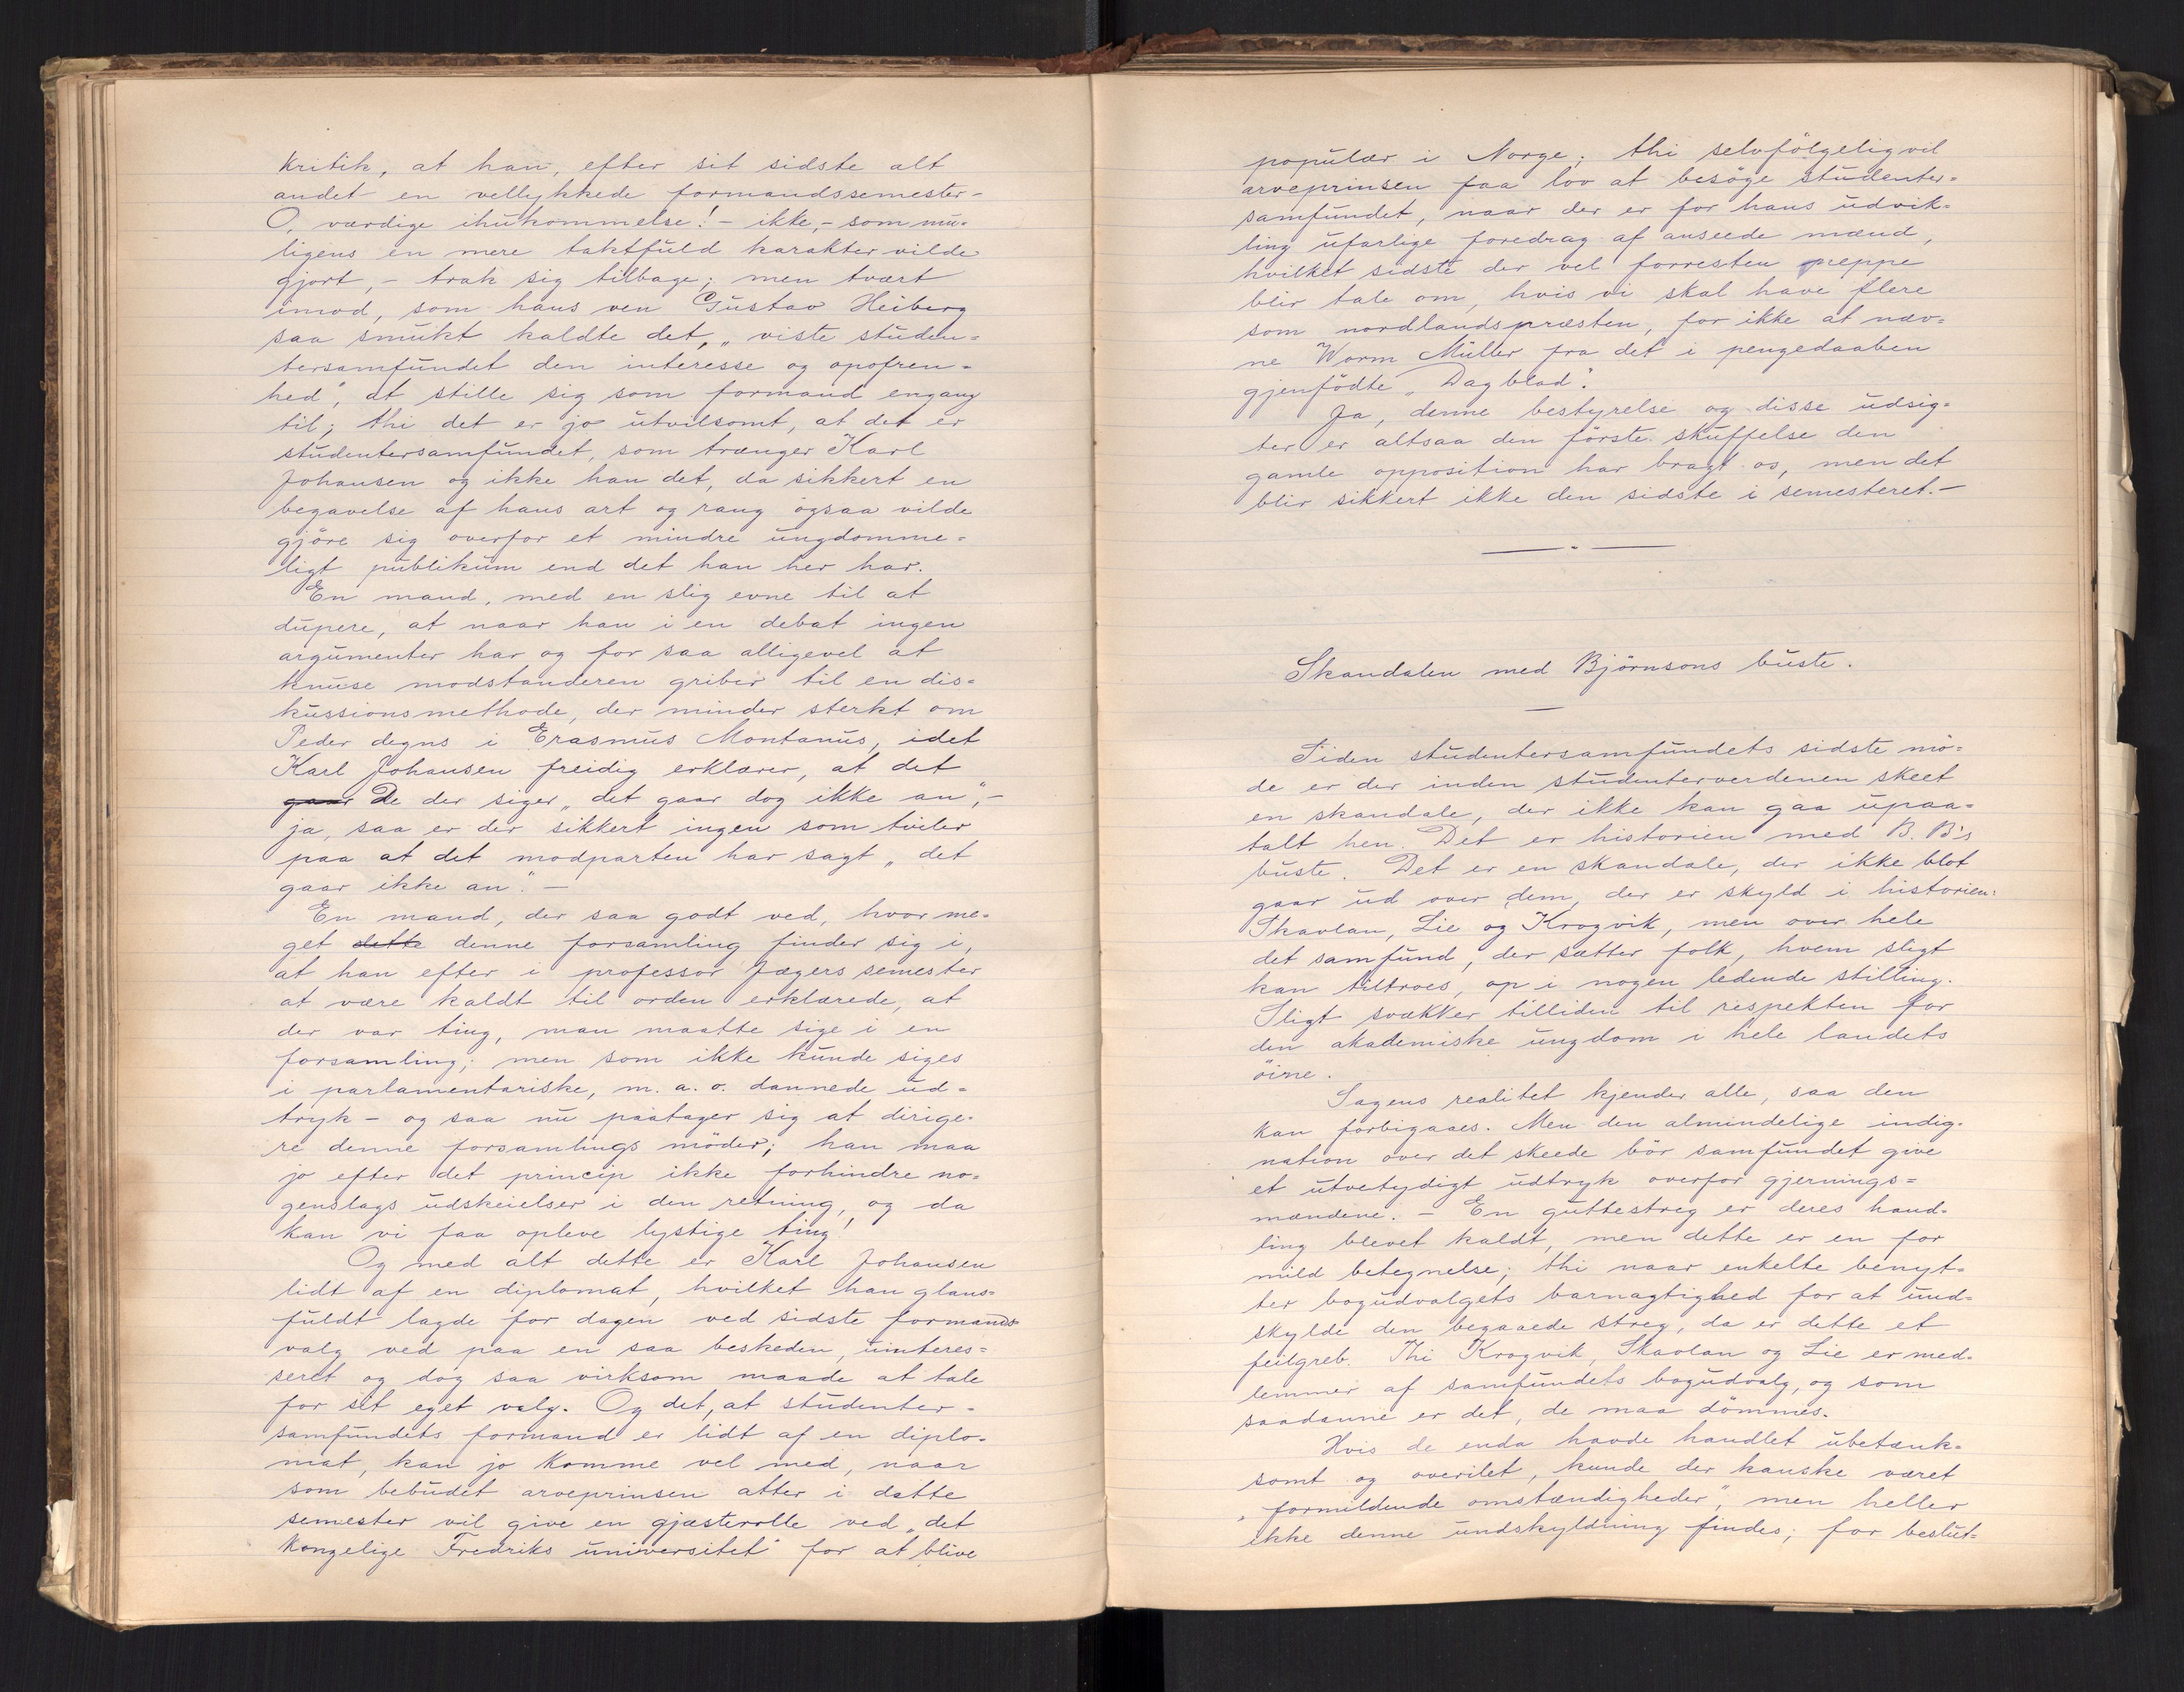 kritik, at han, efter sit sidste alt
andet en vellykkede formandssemester-
O, værdige ihukommelse! - ikke, - som mu-
ligens en mere taktfuld karakter vilde
gjort, - trak sig tilbage; men tvært
imod, som hans ven Gustav Heiberg
saa smukt kaldte det, „viste studen-
tersamfundet den interesse og opofren-
hed", at stille sig som formand engang
til; thi det er jo utvilsomt, at det er
studentersamfundet, som trænger Karl
Johansen og ikke han det, da sikkert en
begavelse af hans art og rang ogsaa vilde
gjöre sig overfor et mindre ungdomme-
ligt publikum end det han her har.
En mand, med en slig evne til at
dupere, at naar han i en debat ingen
argumenter har og for saa alligevel at
knuse modstanderen griber til en dis-
kussionsmethode, der minder sterkt om
Peder degns i Erasmus Montanus, idet
Karl Johansen freidig erklærer, at det
gaar De der siger „det gaar dog ikke an", -
ja, saa er der sikkert ingen som tviler
paa at det modparten har sagt „det
gaar ikke an". -
En mand, der saa godt ved, hvor me-
get dette denne forsamling finder sig i,
at han efter i professor Jægers semester
at være kaldt til orden erklærede, at
der var ting, man maatte sige i en
forsamling; men som ikke kunde siges
i parlamentariske, m. a. o. dannede ud-
tryk - og saa nu paatager sig at dirige-
re denne forsamlings möder; han maa
jo efter det princip ikke forhindre no-
genslags udskeielser i den retning, og da
kan vi faa opleve lystige ting!
Og med alt dette er Karl Johansen
lidt af en diplomat, hvilket han glans-
fuldt lagde for dagen ved sidste formands-
valg ved paa en saa beskeden, uinteres-
seret og dog saa virksom maade at tale
for sit eget valg. Og det, at studenter-
samfundets formand er lidt af en diplo-
mat, kan jo komme vel med, naar
som bebudet arveprinsen atter i dette
semester vil give en gjæsterolle ved „det
kongelige Fredriks universitet" for at blive
populær i Norge; thi selvfölgelig vil
arveprinsen faa lov at besöge studenter-
samfundet, naar der er for hans udvik-
ling ufarlige foredrag af ansede mænd,
hvilket sidste der vel forresten neppe
blir tale om, hvis vi skal have flere
som nordlandspræsten, for ikke at næv-
ne Worm Müller fra det i pengedaaben
gjenfödte „Dagblad".
Ja, denne bestyrelse og disse udsig-
ter er altsaa den förste skuffelse den
gamle opposition har bragt os, men det
blir sikkert ikke den sidste i semesteret. -
Skandalen med Björnsons buste.
Siden studentersamfundets sidste mö-
de er der inden studenterverdenen skeet
en skandale, der ikke kan gaa upaa-
talt hen. Det er historien med B. B's
buste. Det er en skandale, der ikke blot
gaar ud over dem, der er skyld i historien:
Skavlan, Lie og Krogvik, men over hele
det samfund, der sætter folk, hvem sligt
kan tiltroes, op i nogen ledende stilling.
Sligt svækker tilliden til respekten for
den akademiske ungdom i hele landets
öine.
Sagens realitet kjender alle, saa den
kan forbigaaes. Men den almindelige indig-
nation over det skeede bör samfundet give
et utvetydigt udtryk overfor gjernings-
mændene. - En guttestreg er deres hand-
ling blevet kaldt, men dette er en for
mild betegnelse; thi naar enkelte benyt-
ter bogudvalgets barnagtighed for at und-
skylde den begaaede streg, da er dette et
feilgreb. Thi Krogvik, Skavlan og Lie er med-
lemmer af samfundets bogudvalg, og som
saadanne er det, de maa dömmes.
Hvis de enda havde handlet ubetænk-
somt og overilet, kunde der kanske været
„formildende omstændigheder", men heller
ikke denne undskyldning findes; for beslut-